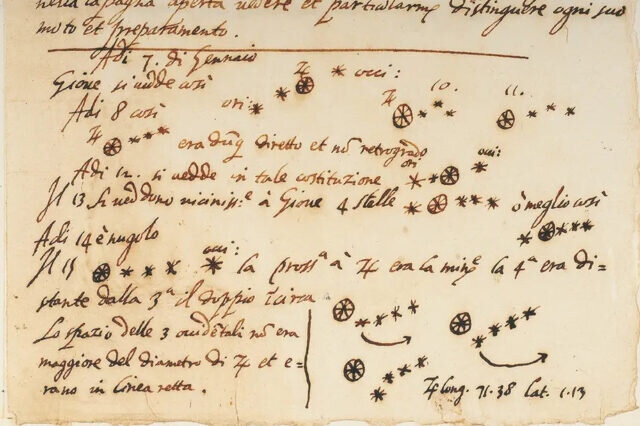 nella pagina aperta vedere et particolarmᵉ distinguere ogni suo
moto et preparamento.
Adi 7. di Gennaio
Gione si vedde così ori: ♃ occi:
Adi 8 così ♃ 10. 11.
♃ era dūq̃ diretto et nō retrogrado
Adi 12. si vedde in tale costituzione ori occi:
Il 13 si veddono vicinissᵉ à Giove 4 stelle ò meglio così
Adi 14 è nugolo
Il 15 occi: la prossᵃ à ♃ era la minᵉ la 4ᵃ era di-
stante dalla 3ᵃ il doppio īcirca
Lo spazio delle 3 occidētali nō era
maggiore del diametro di ♃ et e-
rano in linea retta.
♃ long. 71.38 lat. 1.13